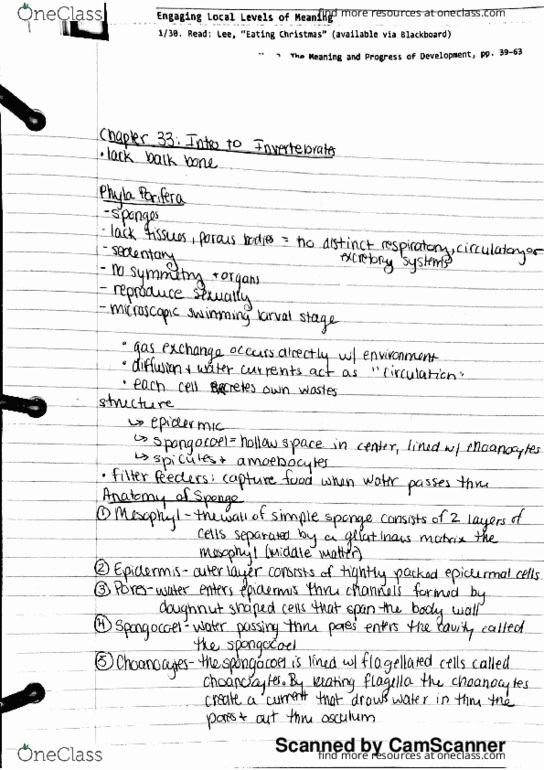 OneClass
find more resources at oneclass.com
Engaging Local Levels of Meaning
1/30. Read: Lee, "Eating Christmas" (available via Blackboard)
The Meaning and Progress of Development, pp. 39-63
Chapter 33: Intro to Invertebrates
• lack back bone
Phyla Porifera
- sponges
- lack tissues, porous bodies = no distinct respiratory, circulatory or
excretory systems
- sedentary
- no symmetry + organs
- reproduce sexually
- microscopic swimming larval stage
• gas exchange occurs directly w/ environment
• diffusion + water currents act as "circulation"
• each cell excretes own wastes
structure
↳ epidermic
↳ spongocoel = hollow space in center, lined w/ choanocytes
↳ spicules + amoebocytes
• filter feeders: capture food when water passes thru
Anatomy of Sponge
① Mesophyl - the wall of simple sponge consists of 2 layers of
cells separated by a gelatinous matrix the
mesophyl (middle matter)
② Epidermis - outer layer consists of tightly packed epidermal cells
③ Pores - water enters epidermis thru channels formed by
doughnut shaped cells that span the body wall
④ Spongocoel - water passing thru pores enters the cavity called
the spongocoel
⑤ Choanocytes - the spongocoel is lined w/ flagellated cells called
choanocytes. By beating flagella the choanocytes
create a current that draws water in thru the
pores + out thru osculum
Scanned by CamScanner
find more resources at oneclass.com
OneClass